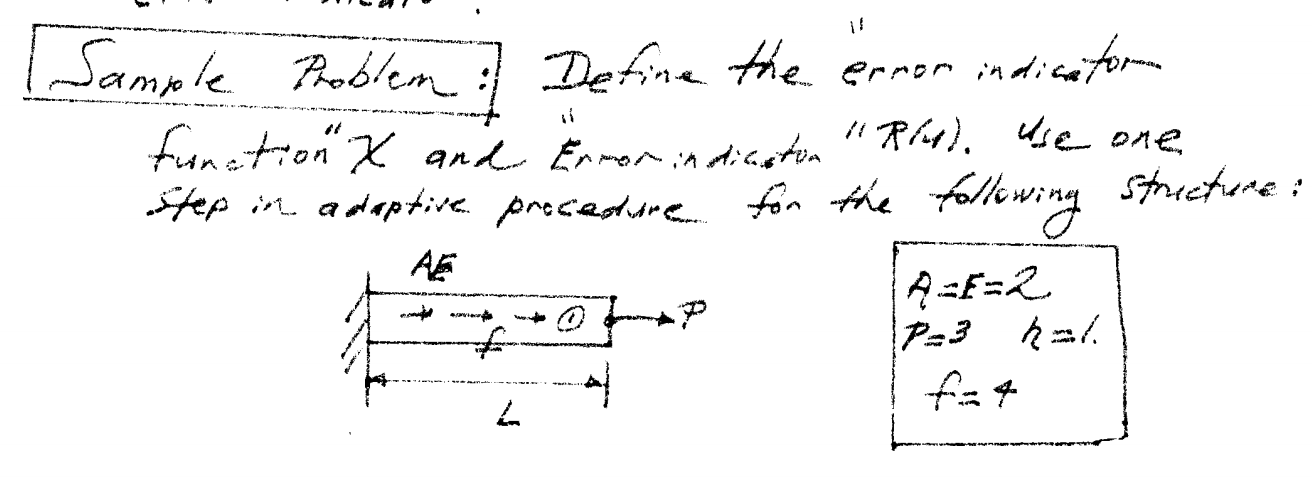 Sample Problem: Define the "error indicator
function" X and "Error indicator" R(u). Use one
step in adaptive procedure for the following structure:
AE
→ → → ① → P
f
L
A=E=2
P=3 h=1.
f=4